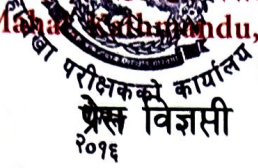 Kathmandu,
परीक्षकको कार्यालय
प्रेस विज्ञप्ती
२०१६